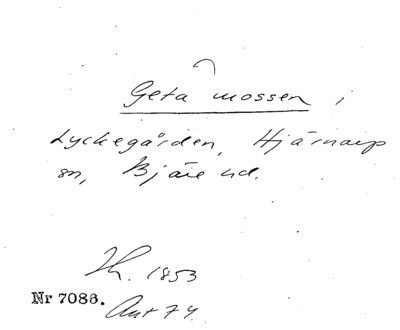 Geta mossen i
Lyckegården, Hjärnarp
sn, Bjäre hd.
Kr. 1853
Nr 7086. Ant 74